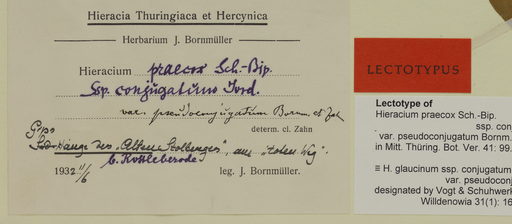 Hieracia Thuringiaca et Hercynica
Herbarium J. Bornmüller
Hieracium praecox Sch.-Bip.
ssp. conjugatum Jord.
var. pseudoconjugatum Bornm. et Zah
determ. cl. Zahn
Gips
hänge des "Alten Stolberges", am "roten Weg"
b. Rottleberode
1932 11/6
leg. J. Bornmüller.
LECTOTYPUS
Lectotype of
Hieracium praecox Sch.-Bip.
ssp. conj
var. pseudoconjugatum Bornm.
in Mitt. Thüring. Bot. Ver. 41: 99.
≡ H. glaucinum ssp. conjugatum
var. pseudoconj
designated by Vogt & Schuhwerk
Willdenowia 31(1): 16